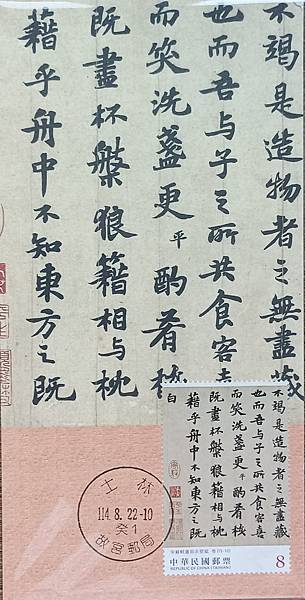 不竭是造物者之無盡藏
也而吾与子之所共食客喜
而笑洗盞更平酌肴核
既盡杯槃狼籍相与枕
籍乎舟中不知東方之既
不竭是造物者之無盡藏
也而吾与子之所共食客喜
而笑洗盞更平酌肴核
既盡杯槃狼籍相与枕
籍乎舟中不知東方之既
白
中華民國郵票
REPUBLIC OF CHINA (TAIWAN)
8
士林
114.8.22-10
癸1
故宮郵局